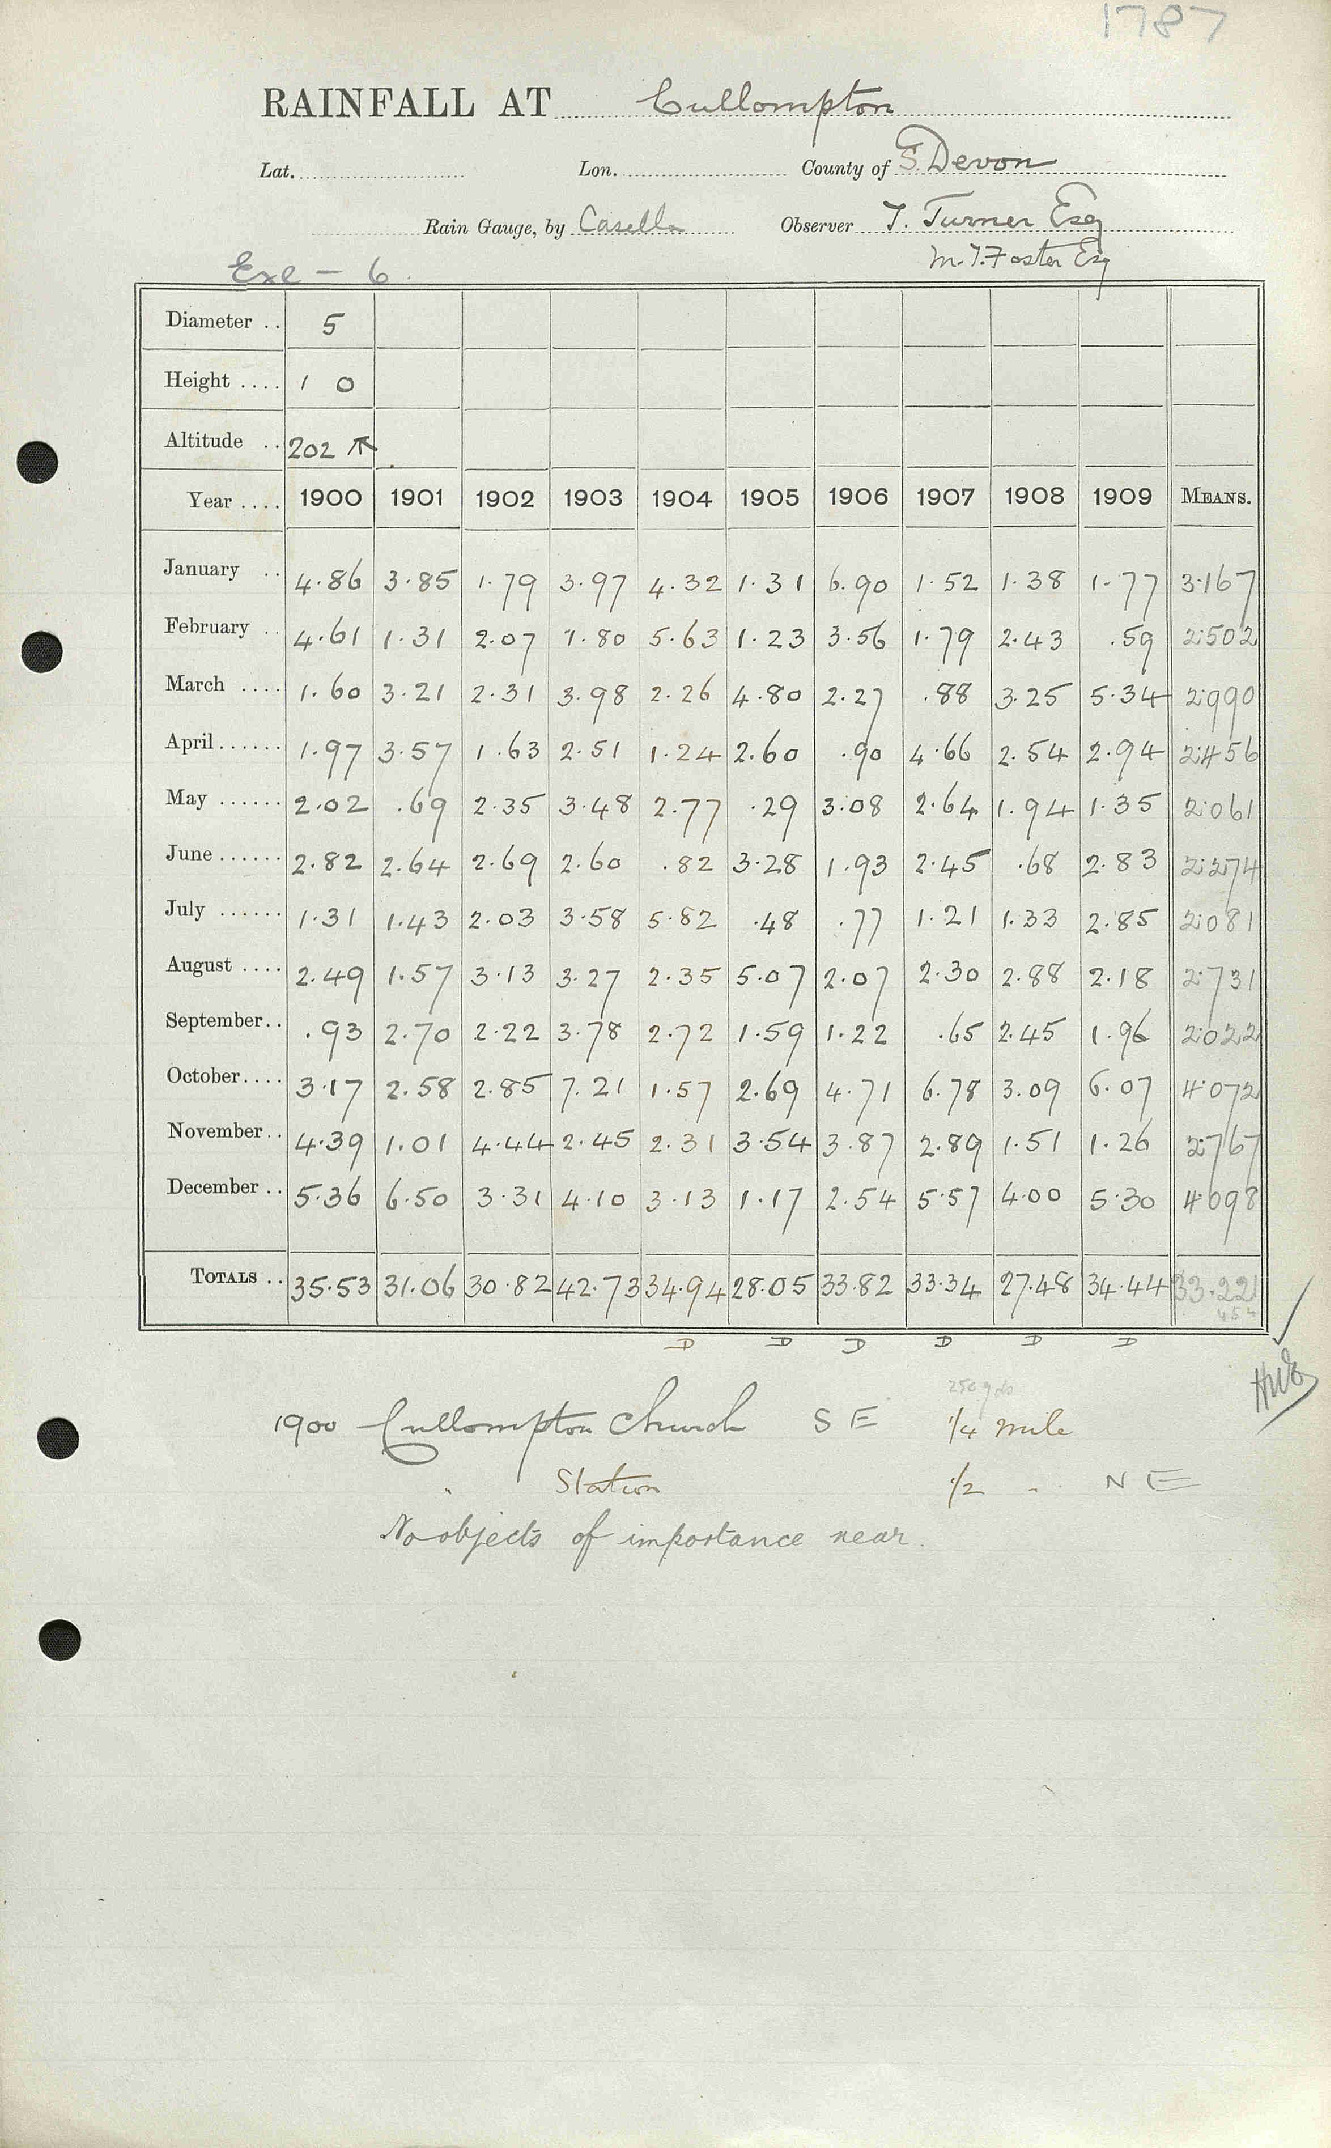 1787
RAINFALL AT Cullompton
Lat. Lon. County of S. Devon
Rain Gauge, by Casella Observer T. Turner Esq
M. T. Foster Esq
Exe - 6.
Diameter .. 5
Height .... 1 0
Altitude .. 202
Year .... 1900 1901 1902 1903 1904 1905 1906 1907 1908 1909 MEANS.
January .. 4.86 3.85 1.79 3.97 4.32 1.31 6.90 1.52 1.38 1.77 3.167
February .. 4.61 1.31 2.07 1.80 5.63 1.23 3.56 1.79 2.43 .59 2.502
March .... 1.60 3.21 2.31 3.98 2.26 4.80 2.27 .88 3.25 5.34 2.990
April...... 1.97 3.57 1.63 2.51 1.24 2.60 .90 4.66 2.54 2.94 2.456
May ...... 2.02 .69 2.35 3.48 2.77 .29 3.08 2.64 1.94 1.35 2.061
June ...... 2.82 2.64 2.69 2.60 .82 3.28 1.93 2.45 .68 2.83 2.274
July ...... 1.31 1.43 2.03 3.58 5.82 .48 .77 1.21 1.33 2.85 2.081
August .... 2.49 1.57 3.13 3.27 2.35 5.07 2.07 2.30 2.88 2.18 2.731
September.. .93 2.70 2.22 3.78 2.72 1.59 1.22 .65 2.45 1.96 2.022
October.... 3.17 2.58 2.85 7.21 1.57 2.69 4.71 6.78 3.09 6.07 4.072
November.. 4.39 1.01 4.44 2.45 2.31 3.54 3.87 2.89 1.51 1.26 2.767
December .. 5.36 6.50 3.31 4.10 3.13 1.17 2.54 5.57 4.00 5.30 4.098
TOTALS .. 35.53 31.06 30.82 42.73 34.94 28.05 33.82 33.34 27.48 34.44 33.221
D D D D D D
250 yds
1900 Cullompton Church S E 1/4 mile
" Station 1/2 " N E
No objects of importance near.